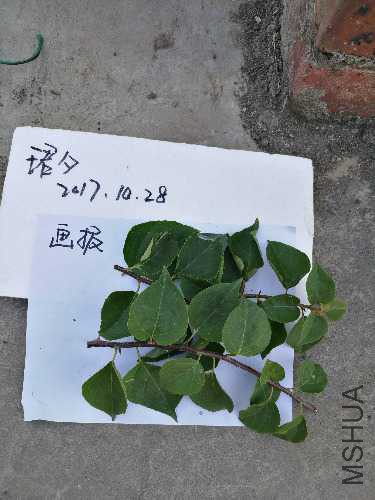 珺夕
2017.10.28
画报
MSHUA